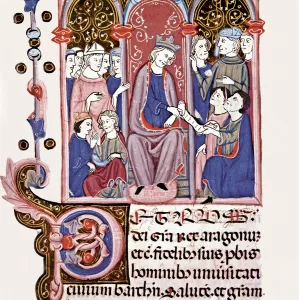 PETRUS
dei gr̄a Rex aragonum
etc̄ fidelibus suis ꝓbis
hominibus uniusitati
ciuium barchn̄. Salutē et gram